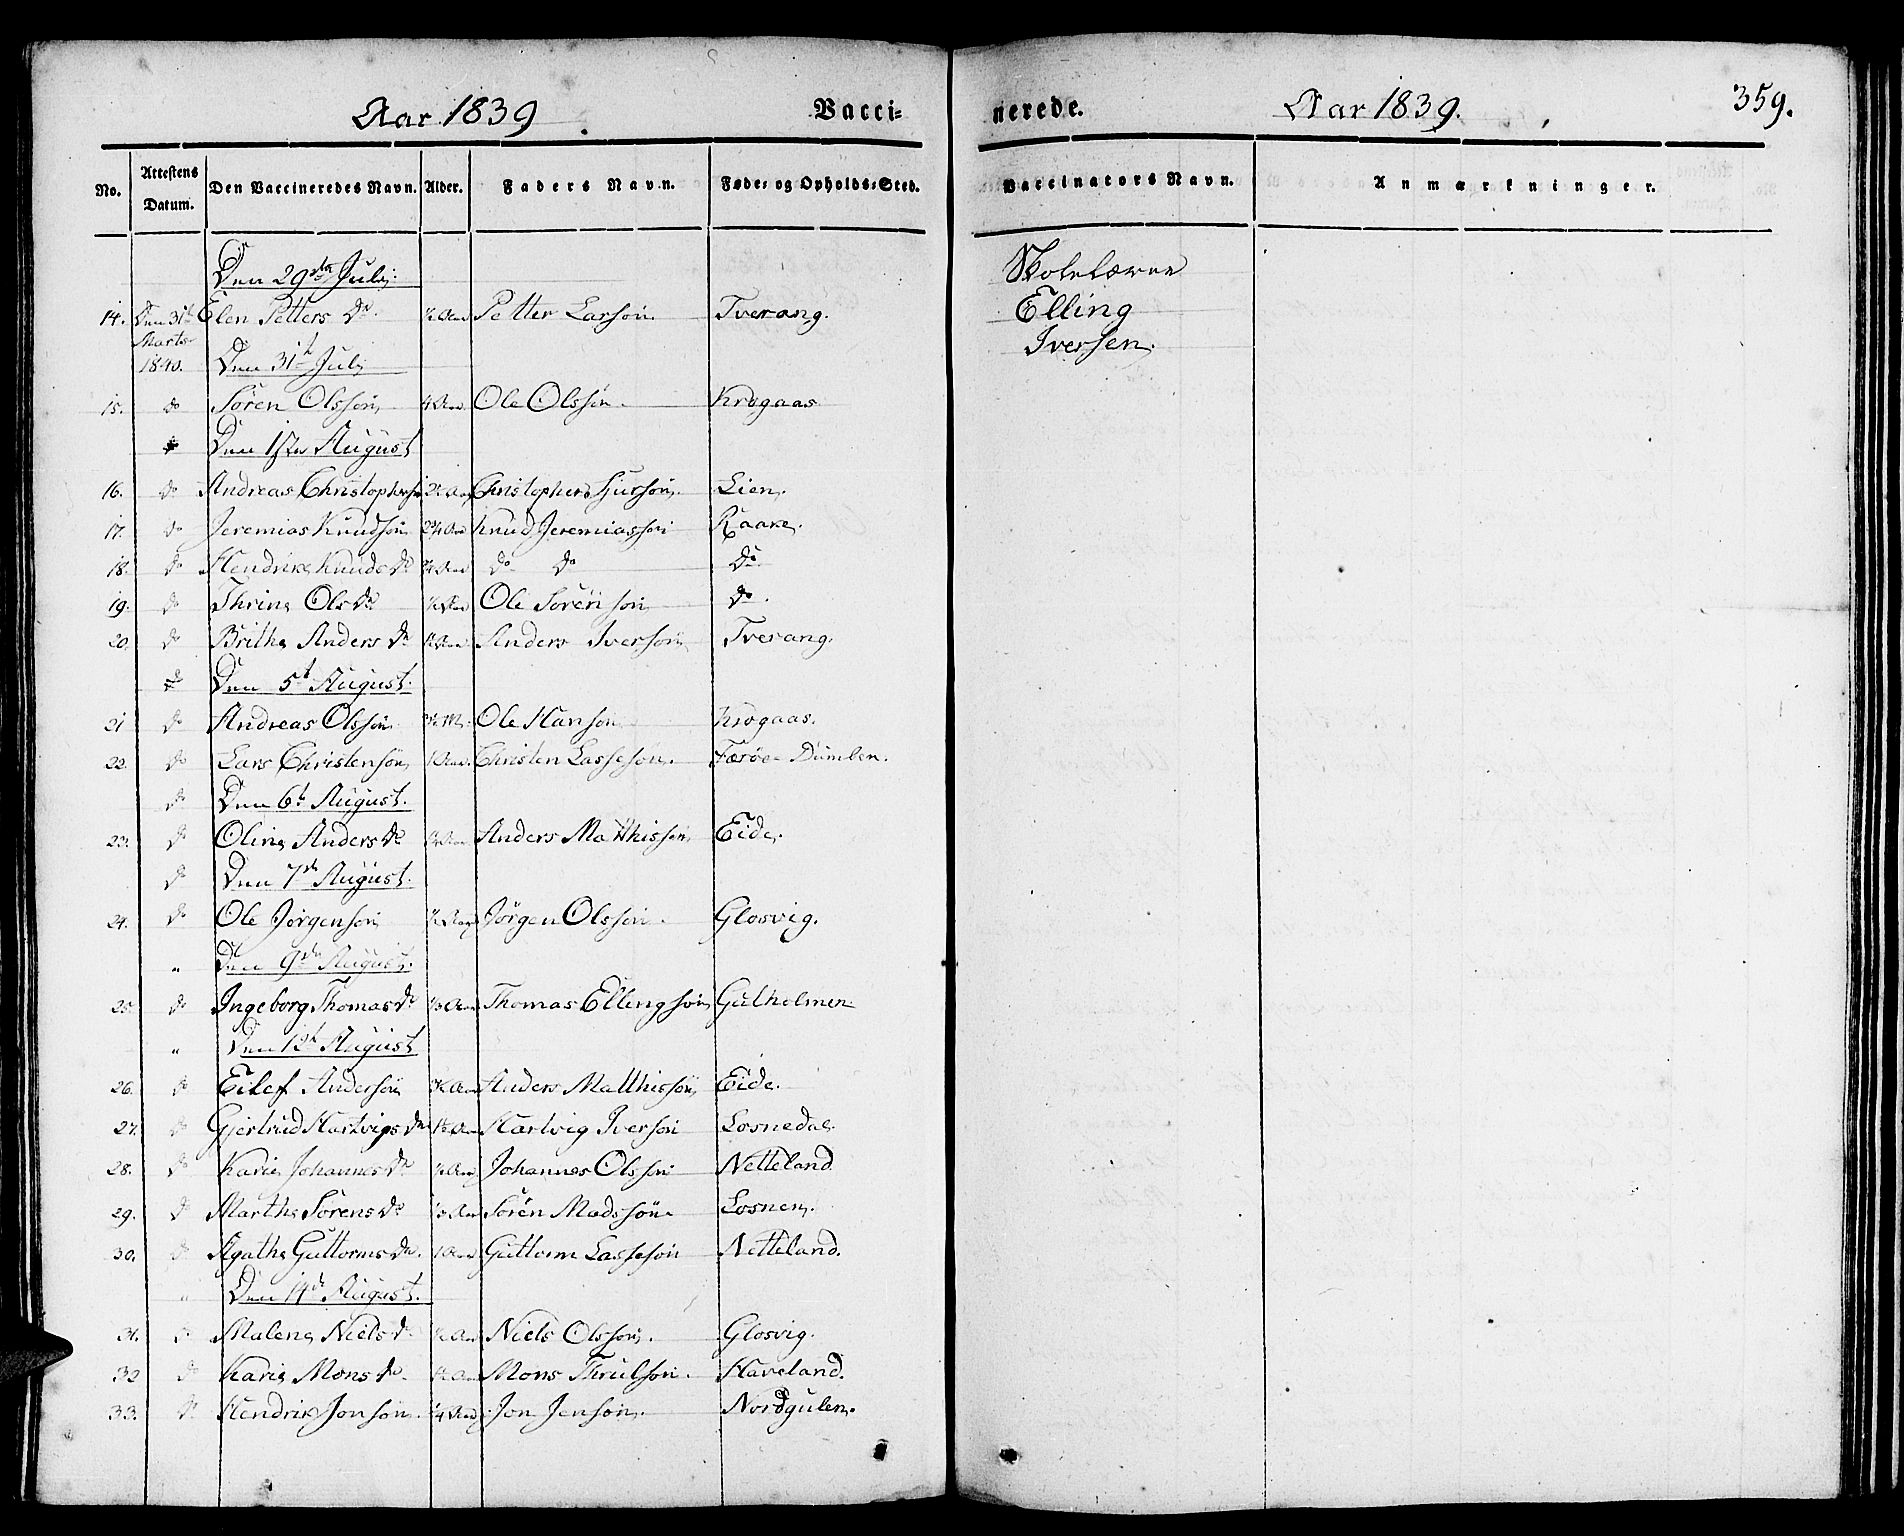 Aar 1839. Vacci-
No. Attestens Datum. Den Vaccineredes Navn. Alder. Faders Navn. Føde- og Opholds-Sted.
Den 29de Juli:
14. Den 31te Elen Petters Dr. 1/2 Aar Petter Larson Tverang.
Marts
1840. Den 31te Juli
15. do Søren Olsson 4 Aar. Ole Olsson Krogaas
Den 1ste August
16. do Andreas Christophersøn Christopher Lien.
17. do Jeremias Knudsøn 2 3/4 Aar Knud Jeremiasson Raake.
18. do Hendrike Knuds Dr Aar do do do
19. do Thrine Ols Dr Aar Ole Sørenson do.
20. do Brithe Anders Dr Aar Anders Iverson Tverang.
do Den 5te August.
21 do Andreas Olsson M. Ole Hanson Krogaas.
22. do Lars Christensøn 1 Aar. Christen Lasseson. Færøe Dumben.
do Den 6te August.
23. do Oline Anders Dr Aar Anders Matthisson Eide.
do Den 7de August.
24. do Ole Jørgenson 1/2 Aar Jørgen Olsson. Glosvig.
" Den 9de August.
25. do Ingeborg Thomas Dr 1/3 Aar Thomas Ellingson Gulholmen
" Den 12te August
26. do Eilef Andersøn Aar Anders Matthissøn Eide.
27. do Gjertrud Hartvigs Dr Aar Hartvig Iverson Losnedal.
28. do Karie Johannes Dr Aar Johannes Olsson Netteland
29. do Marthe Sørens Dr 1/3 Aar Søren Madssøn Losnen.
30. do Agathe Guttorms Dr. 1 Aar. Guttorm Lasseson Netteland.
" Den 14de August.
31. do Malene Niels Dr Aar Niels Olsson. Glosvig.
32 do Karie Mons Dr. Aar Mons Thrulson. Haveland.
33. do Hendrik Jonson. 1/4 Aar Jon Jenson. Nordgulen.
nerede. Aar 1839. 359.
Vaccinators Navn. Anmærkninger.
Skolelærer
Elling
Iversen.